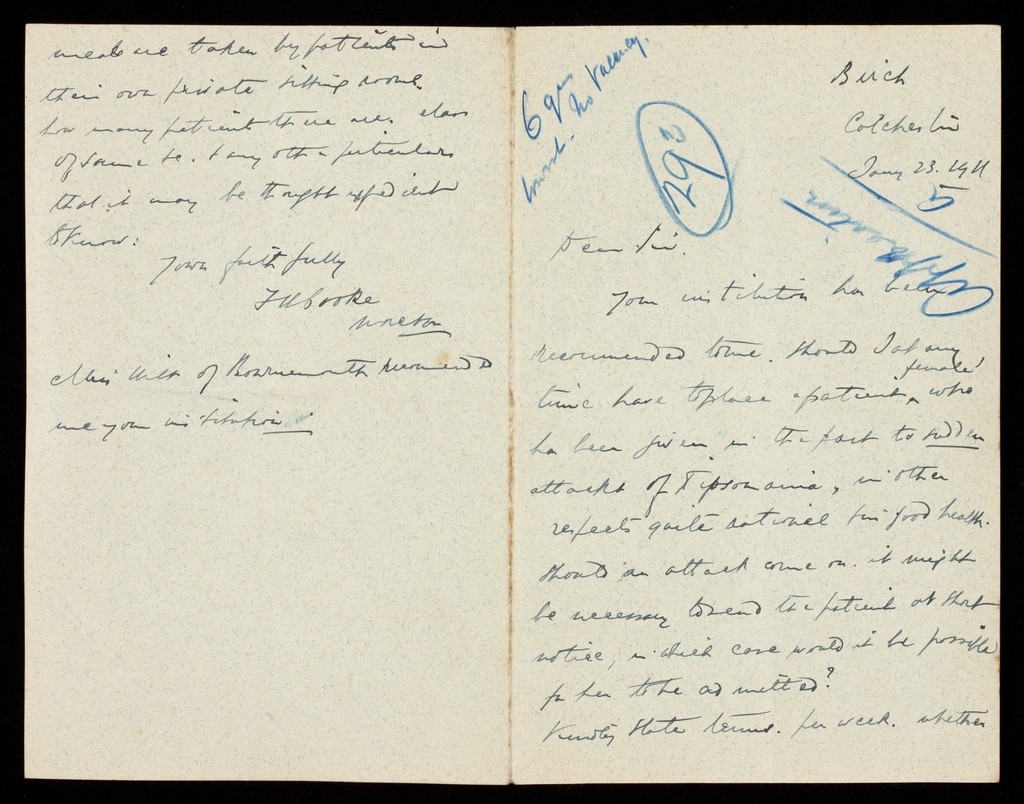 Birch
Colchester
Jany 23. 1911
5
Application
6 gns
lowest. No Vacancy.
Dear Sir.
Your institution has been
recommended to me. Should I at any
time have to place a patient, female who
has been given in the past to sudden
attacks of Dipsomania, in other
respects quite rational & in good health.
Should an attack come on. it might
be necessary to send the patient at short
notice, in which case would it be possible
for her to be admitted?
Kindly state terms. per week. whether
meals are taken by patients in
their own private sitting rooms.
how many patients there are. class
of same &c. & any other particulars
that it may be thought expedient
to know:
Yours faithfully
Miss of Bournemouth recommended
me your institution.